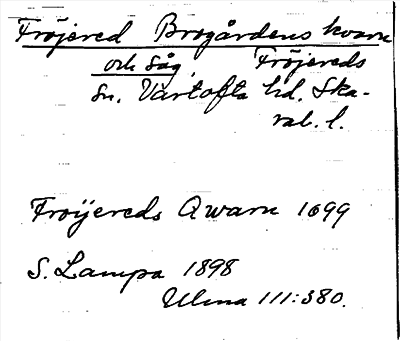 Fröjered Brogårdens kvarn
och såg, Fröjereds
sn. Vartofta hd. Ska-
rab. l.
Froijereds Qwarn 1699
S. Lampa 1898
Ulma 111:380.